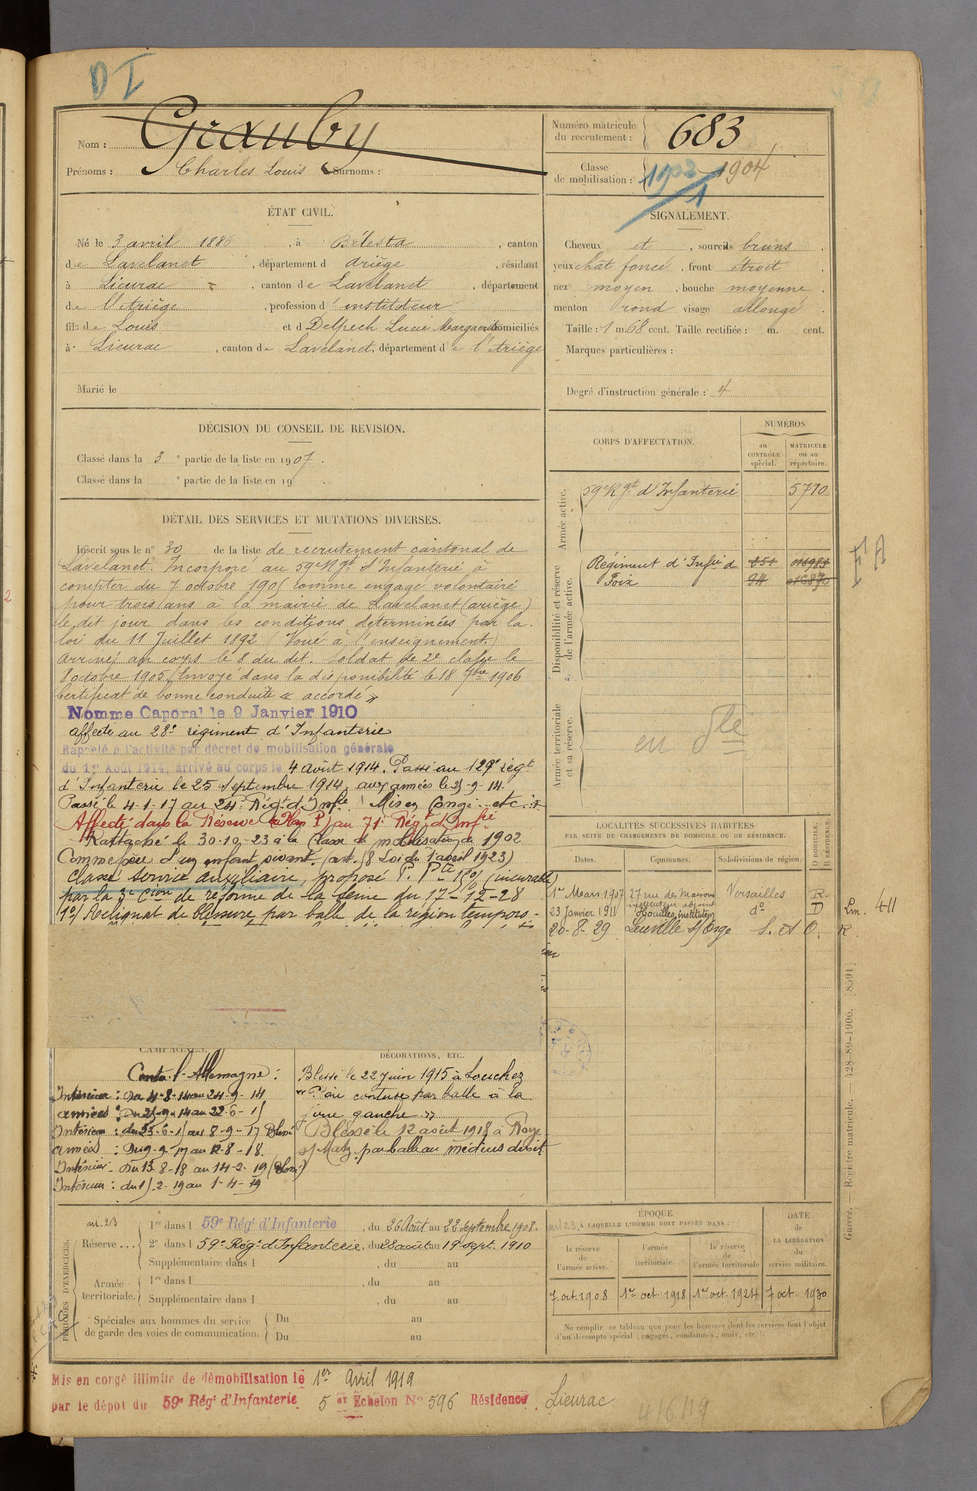 D I
Nom : Grauby
Prénoms : Charles Louis Surnoms :
Numéro matricule du recrutement : 683
Classe de mobilisation : 1902 / 1 1904
ÉTAT CIVIL.
Né le 3 avril 1886, à Bélesta, canton
de Lavelanet, département d ariège, résidant
à Lieurac, canton de Lavelanet, département
de l'Ariège, profession d' instituteur
fils de Louis et d Delpech Lucie Marguerite domiciliés
à Lieurac, canton de Lavelanet, département de l'Ariège
Marié le
SIGNALEMENT.
Cheveux et, sourcils bruns.
yeux chât foncé, front étroit
nez moyen, bouche moyenne,
menton rond visage allongé
Taille : 1 m 68 cent. Taille rectifiée : m. cent.
Marques particulières :
Degré d'instruction générale : 4
DÉCISION DU CONSEIL DE REVISION.
Classé dans la 3e partie de la liste en 1907.
Classé dans la e partie de la liste en 19
DÉTAIL DES SERVICES ET MUTATIONS DIVERSES.
Inscrit sous le n° 30 de la liste de recrutement cantonal de
Lavelanet. Incorporé au 59e Rgt d'Infanterie à
compter du 7 octobre 1905 comme engagé volontaire
pour trois ans à la mairie de Lavelanet (ariège)
le dit jour dans les conditions déterminées par la
loi du 11 Juillet 1892 (Voué à l'enseignement.)
Arrivé au corps le 8 du dit. Soldat de 2e classe le
8 octobre 1905. Envoyé dans la disponibilité le 18 7bre 1906
Certificat de bonne conduite « accordé »
Nommé Caporal le 9 Janvier 1910
affecté au 28e régiment d'Infanterie
Rappelé à l'activité par décret de mobilisation générale
du 1er Août 1914, arrivé au corps le 4 août 1914. Passé au 129e régt
d'Infanterie le 25 Septembre 1914, aux armées le 25-9-14.
Passé le 4-1-17 au 24e Régt d'Infie Mis en Congé.. etc..
Affecté dans la Réserve au 71e Régt d'Infie
Rattaché le 30-10-23 à la Classe de mobilisation de 1902
Comme père d'un enfant vivant. (art. 58 Loi du 1 avril 1923)
Classé Service auxiliaire, proposé P. Pte (incurable)
par la 3e Cion de réforme de la Seine du 17-12-28
1°/ Reliquat de blessure par balle de la région temporo-
CORPS D'AFFECTATION.
NUMÉROS
AU CONTRÔLE spécial.
MATRICULE OU AU répertoire.
Armée active.
59e Rgt d'Infanterie 5710
Disponibilité et réserve de l'armée active.
Régiment d'Infie de 251
Foix 24
Armée territoriale et sa réserve.
LOCALITÉS SUCCESSIVES HABITÉES
PAR SUITE DE CHANGEMENTS DE DOMICILE OU DE RÉSIDENCE.
Dates. Communes. Subdivisions de région. D DOMICILE. R RÉSIDENCE.
1er Mars 1907 27 rue de Versailles R
23 Janvier 1911 instituteur d° D
20-8-29 Leuville s/ Orge S. et O. R
Lm. 411
CAMPAGNES.
Contre l'Allemagne :
Intérieur : du 4-8-14 au 24-9-14
armées : Du 25-9-14 au 22-6-15
Intérieur : du 23-6-15 au 8-9-17 Blessé
armées : Du 9-9-17 au 12-8-18.
Intérieur : Du 13-8-18 au 14-2-19 (Blessé)
Intérieur : du 15-2-19 au 1-4-19
DÉCORATIONS, ETC.
Blessé le 22 juin 1915 à Souchez
« Plaie contuse par balle à la
joue gauche »
Blessé le 12 août 1918 à Roye
s/ Matz par balle au médius droit
PÉRIODES D'EXERCICES.
art. 23
Réserve ...
1re dans l 59e Régt d'Infanterie, du 26 Août au 22 septembre 1908.
2e dans l 59e Régt d'Infanterie, du 28 août au 19 sept. 1910
Supplémentaire dans l , du au
Armée territoriale.
1re dans l , du au
Supplémentaire dans l , du au
Spéciales aux hommes du service de garde des voies de communication.
Du au
Du au
ÉPOQUE
À LAQUELLE L'HOMME DOIT PASSER DANS :
la réserve de l'armée active.
l'armée territoriale.
la réserve de l'armée territoriale
DATE de LA LIBÉRATION du service militaire.
7 oct. 1908 1er oct. 1918 1er oct. 1924 7 oct. 1930
Ne remplir ce tableau que pour les hommes dont les services font l'objet
d'un décompte spécial (engagés, condamnés, omis, etc.)
Guerre. — Registre matricule. — 428-89-1906. [8591]
Mis en congé illimité de démobilisation le 1er Avril 1919
par le dépôt du 59e Régt d'Infanterie 5 er Echelon N° 596 Résidence Lieurac